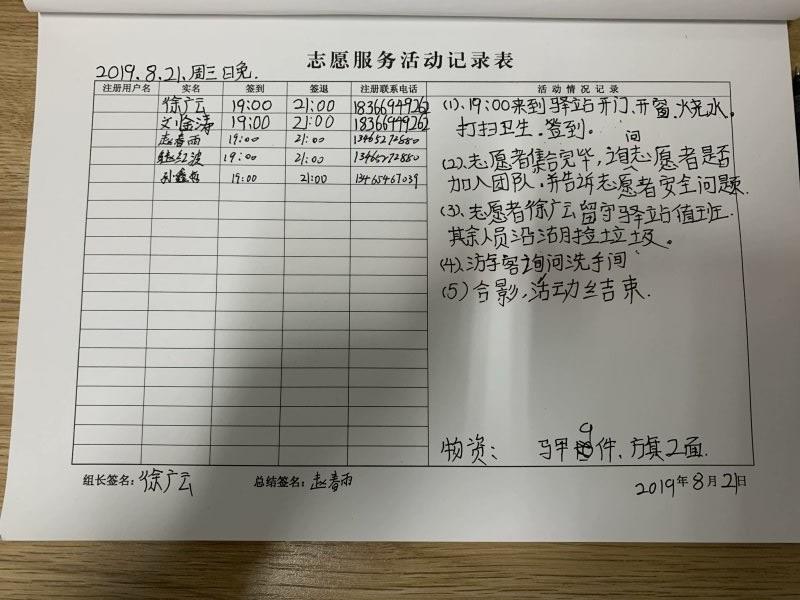 志愿服务活动记录表
2019.8.21.周三晚.
注册用户名 实名 签到 签退 注册联系电话 活动情况记录
徐广云 19:00 21:00 18366949262
刘金涛 19:00 21:00 18366949262
赵春雨 19:00 21:00 13465272880
19:00 21:00 13465272880
19:00 21:00 13465467039
(1).19:00来到驿站开门、开窗,烧水。
打扫卫生.签到。
(2).志愿者集合完毕,询问志愿者是否
加入团队.并告诉志愿者安全问题.
(3).志愿者徐广云留守驿站值班.
其余人员沿湖捡垃圾。
(4).游客询问洗手间
(5)合影,活动结束.
物资: 马甲9件、方旗2面.
组长签名:徐广云 总结签名:赵春雨
2019年8月21日